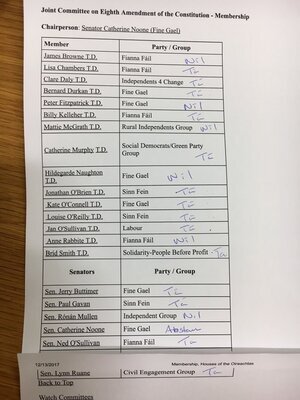 Joint Committee on Eighth Amendment of the Constitution - Membership
Chairperson: Senator Catherine Noone (Fine Gael)
Member Party / Group
James Browne T.D. Fianna Fáil Nil
Lisa Chambers T.D. Fianna Fáil Tá
Clare Daly T.D. Independents 4 Change Tá
Bernard Durkan T.D. Fine Gael Tá
Peter Fitzpatrick T.D. Fine Gael Nil
Billy Kelleher T.D. Fianna Fáil Tá
Mattie McGrath T.D. Rural Independents Group Nil
Catherine Murphy T.D. Social Democrats/Green Party
Group Tá
Hildegarde Naughton
T.D. Fine Gael Nil
Jonathan O'Brien T.D. Sinn Fein Tá
Kate O'Connell T.D. Fine Gael Tá
Louise O'Reilly T.D. Sinn Fein Tá
Jan O'Sullivan T.D. Labour Tá
Anne Rabbite T.D. Fianna Fáil Nil
Brid Smith T.D. Solidarity-People Before Profit Tá
Senators Party / Group
Sen. Jerry Buttimer Fine Gael Tá
Sen. Paul Gavan Sinn Fein Tá
Sen. Rónán Mullen Independent Group Nil
Sen. Catherine Noone Fine Gael Abstain
Sen. Ned O'Sullivan Fianna Fáil Tá
12/13/2017 Membership, Houses of the Oireachtas
Sen. Lynn Ruane Civil Engagement Group Tá
Back to Top
Watch Committees